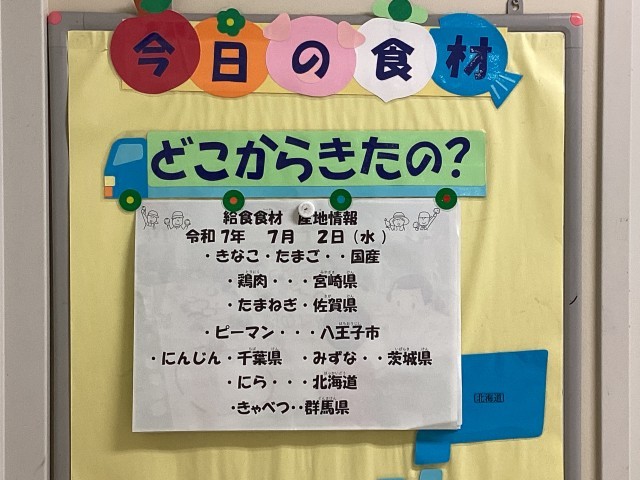 今日の食材
どこからきたの？
給食食材　産地情報
令和 7年　7月　2日（水）
・きなこ・たまご・・国産
・鶏肉・・・宮崎県
・たまねぎ・佐賀県
・ピーマン・・・八王子市
・にんじん・千葉県　・みずな・・茨城県
・にら・・・北海道
・きゃべつ・・群馬県
北海道